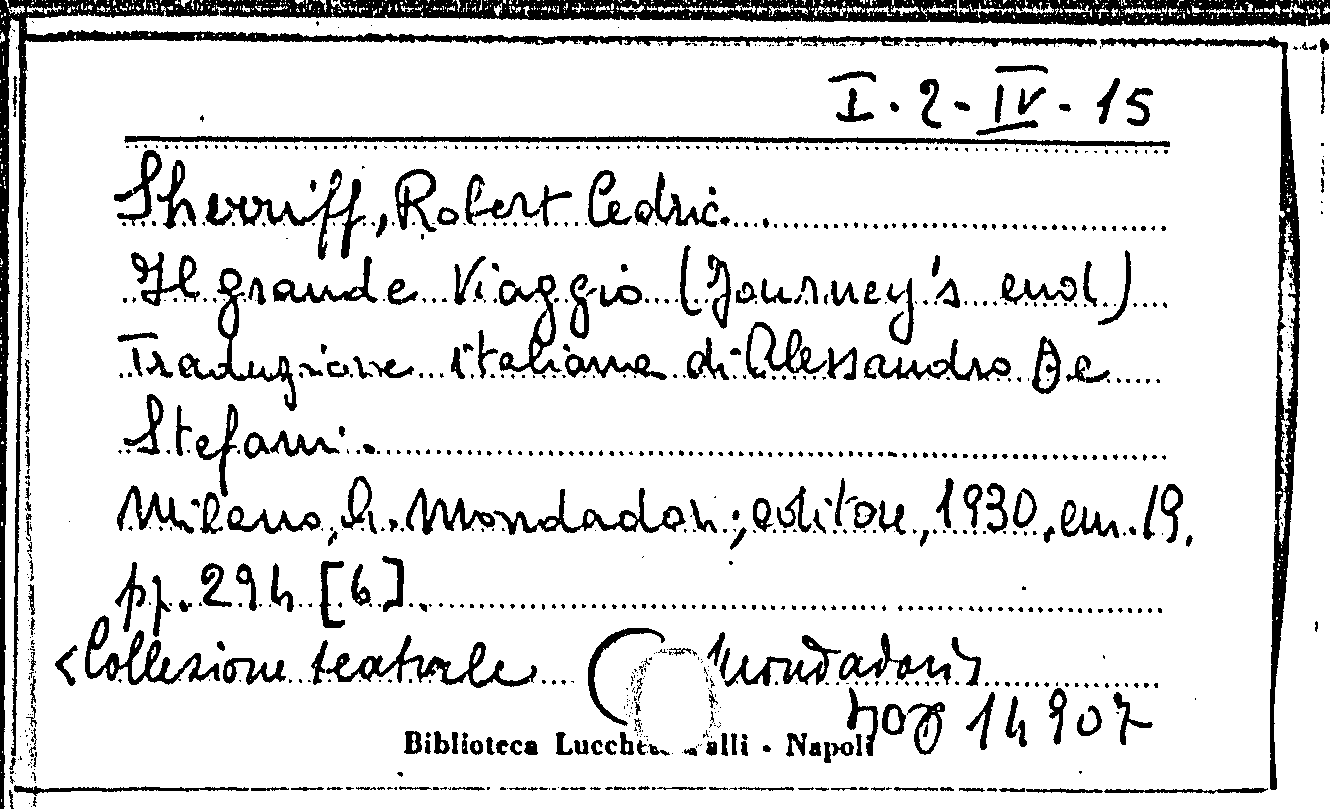 I. 2 - IV - 15
Sherriff, Robert Cedric.
Il grande Viaggio (Journey's end)
Traduzione italiana di Alessandro De
Stefani.
Milano, A. Mondadori; editore, 1930, cm. 19.
pp. 294 [6].
<Collezione teatrale Mondadori>
14907
Biblioteca - Napoli